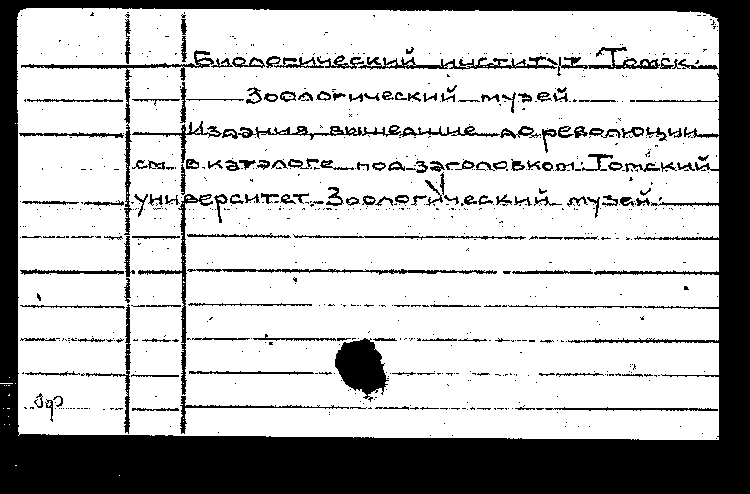 Биологический институт Томск.
Зоологический музей
Издания, вышедшие до революции
см. в каталоге под заголовком: Томский
университет. Зоологический музей.